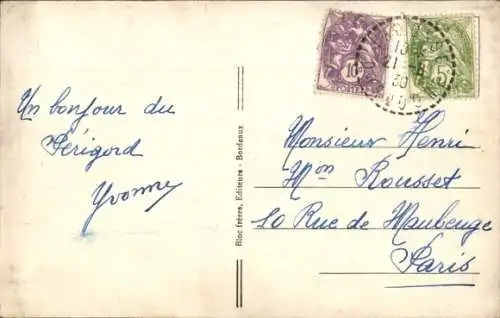 Un bonjour du
Périgord
Yvonne
Bloc frères, Editeurs - Bordeaux
10
POSTES
5
13
21-8
30
Monsieur Henri
Mon Rousset
10 Rue de Maubeuge
Paris